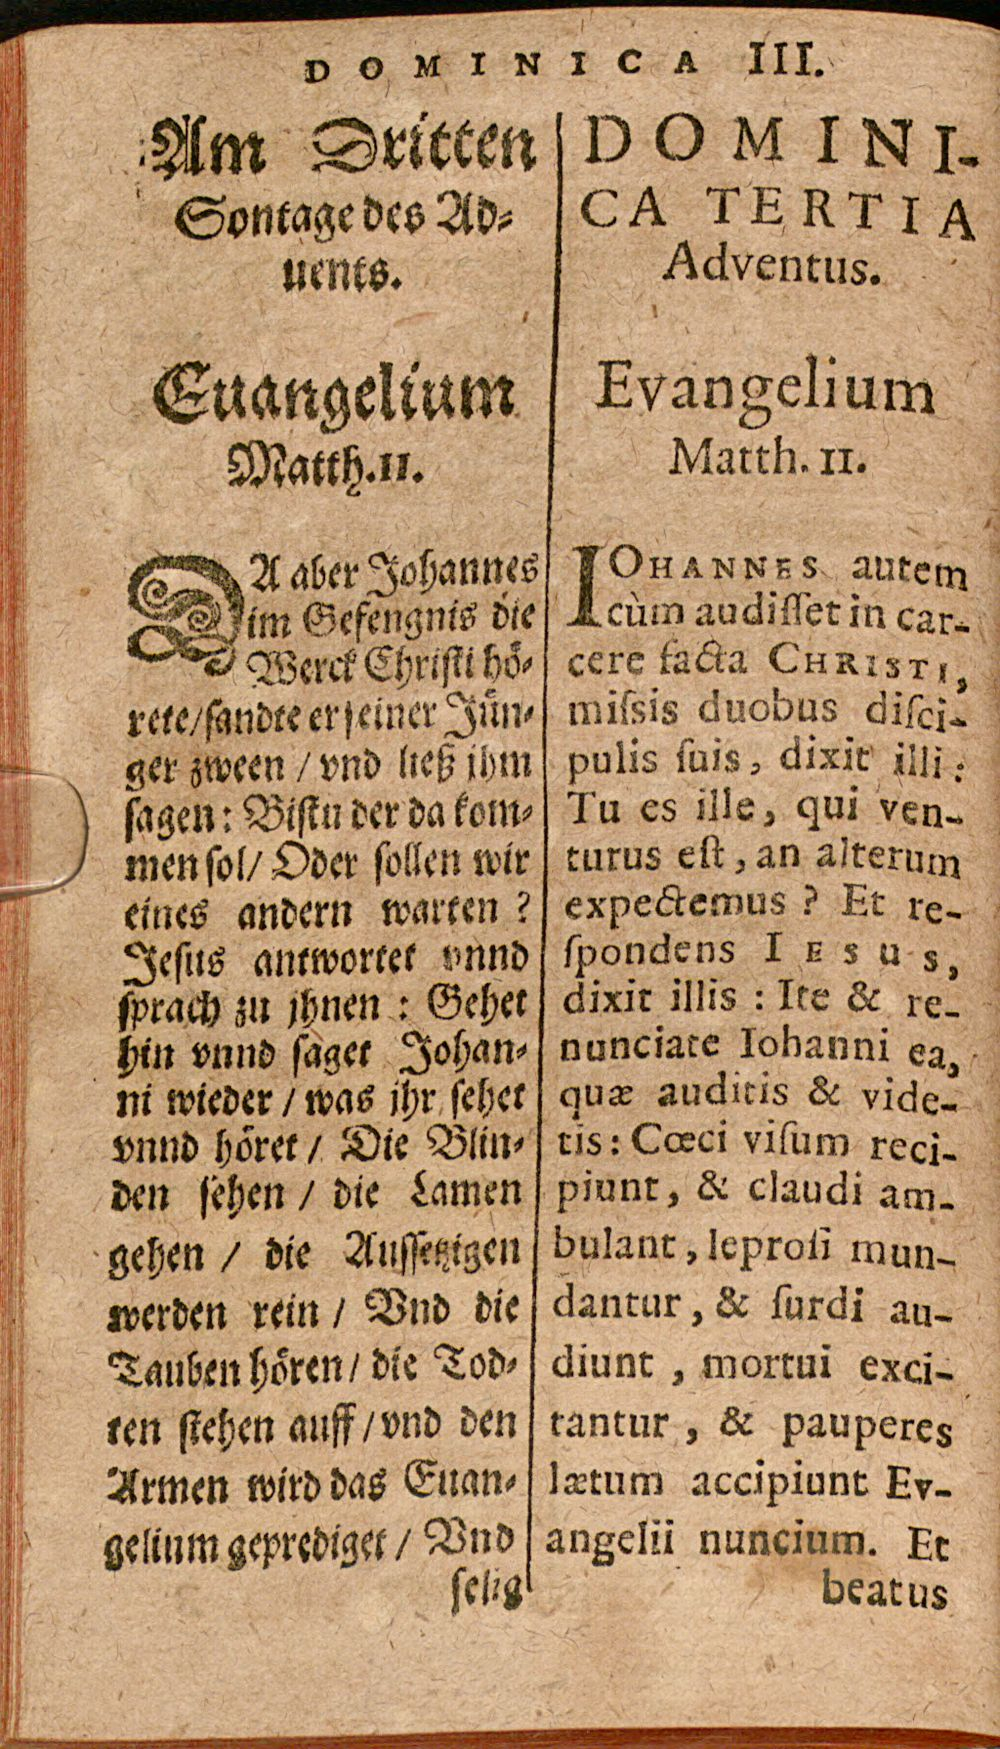 DOMINICA III.
Am Dritten
Sontage des Ad⸗
uents.
Euangelium
Matth.11.
DA aber Johannes
im Gefengnis die
Werck Christi hö⸗
rete/sandte er seiner Jün⸗
ger zween / vnd ließ jhm
sagen: Bistu der da kom⸗
men sol/ Oder sollen wir
eines andern warten ?
Jesus antwortet vnnd
sprach zu jhnen : Gehet
hin vnnd saget Johan⸗
ni wieder / was jhr sehet
vnnd höret / Die Blin⸗
den sehen / die Lamen
gehen / die Aussetzigen
werden rein / Vnd die
Tauben hören / die Tod⸗
ten stehen auff / vnd den
Armen wird das Euan⸗
gelium geprediget / Vnd
selig
DOMINI-
CA TERTIA
Adventus.
Evangelium
Matth. 11.
IOHANNES autem
cùm audiſſet in car-
cere facta CHRISTI,
miſsis duobus diſci-
pulis ſuis, dixit illi:
Tu es ille, qui ven-
turus eſt, an alterum
expectemus ? Et re-
ſpondens IESUS,
dixit illis : Ite & re-
nunciate Iohanni ea,
quæ auditis & vide-
tis: Cœci viſum reci-
piunt, & claudi am-
bulant, leproſi mun-
dantur, & ſurdi au-
diunt, mortui exci-
tantur, & pauperes
lætum accipiunt Ev-
angelii nuncium. Et
beatus